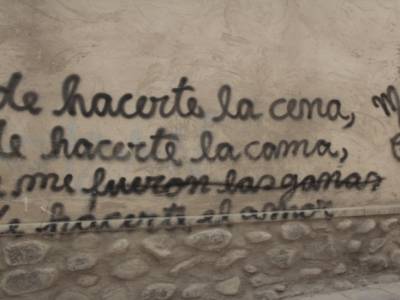 de hacerte la cena,
de hacerte la cama,
me fueron las ganas
de hacerte el amor